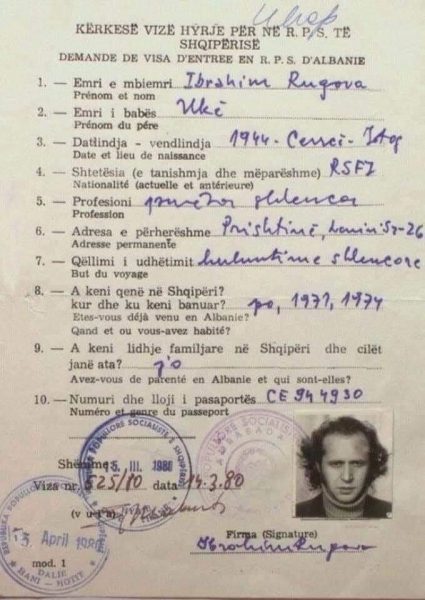 KËRKESË VIZË HYRJE PËR NË R. P. S. TË
SHQIPËRISË
DEMANDE DE VISA D'ENTREE EN R. P. S. D'ALBANIE
1. — Emri e mbiemri Ibrahim Rugova
Prénom et nom
2. — Emri i babës Ukë
Prénom du pére
3. — Datlindja - vendlindja 1944 - Cerrcë - Istog
Date et lieu de naissance
4. — Shtetësia (e tanishmja dhe mëparëshme) RSFJ
Nationalité (actuelle et antérieure)
5. — Profesioni punëtor shkencor
Profession
6. — Adresa e përherëshme Prishtinë,
Adresse permanente
7. — Qëllimi i udhëtimit hulumtime shkencore
But du voyage
8. — A keni qenë në Shqipëri?
kur dhe ku keni banuar? po, 1971, 1974
Etes-vous déjà venu en Albanie?
Quand et ou vous-avez habité?
9. — A keni lidhje familjare në Shqipëri dhe cilët
janë ata? jo
Avez-vous de parenté en Albanie et qui sont-elles?
10. — Numuri dhe lloji i pasaportës CE 944930
Numéro et genre du passeport
Shënime 5. III. 1980
Viza nr. 525/80 data 14.3.80
Firma (Signature)
Ibrahim Rugova
5 April 1980
DALJE
HANI - HOTIT
mod. 1